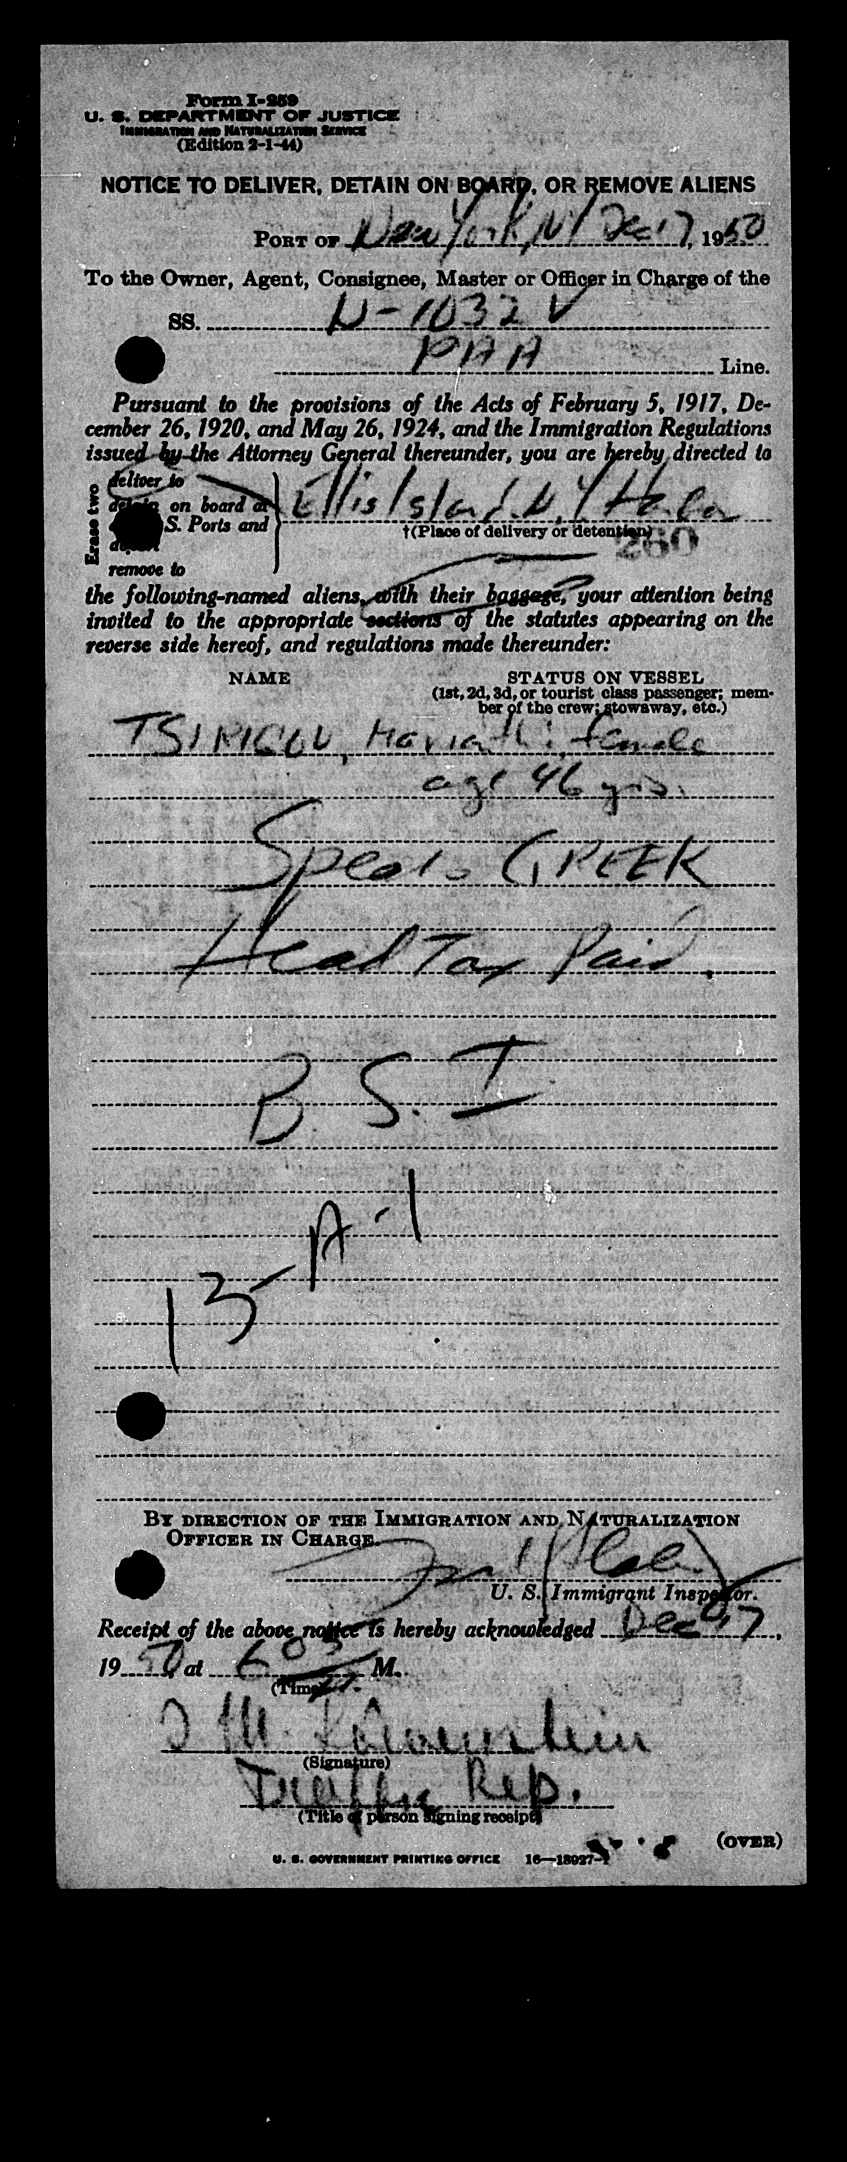 Form I-259
U. S. DEPARTMENT OF JUSTICE
IMMIGRATION AND NATURALIZATION SERVICE
(Edition 2-1-44)
NOTICE TO DELIVER, DETAIN ON BOARD, OR REMOVE ALIENS
PORT OF New York, NY Dec 17, 1950
To the Owner, Agent, Consignee, Master or Officer in Charge of the
SS. N-1032 V
PAA Line.
Pursuant to the provisions of the Acts of February 5, 1917, De-
cember 26, 1920, and May 26, 1924, and the Immigration Regulations
issued by the Attorney General thereunder, you are hereby directed to
Erase two
deliver to
detain on board at
S. Ports and
remove to
Ellis Island, N.Y. Harbor
†(Place of delivery or detention)
260
the following-named aliens, with their baggage, your attention being
invited to the appropriate sections of the statutes appearing on the
reverse side hereof, and regulations made thereunder:
NAME STATUS ON VESSEL
(1st, 2d, 3d, or tourist class passenger; mem-
ber of the crew; stowaway, etc.)
TSIRIGOU, Marianthi, female
age 46 yrs.
Speaks GREEK
Head Tax Paid.
B. S. I
13-A-1
BY DIRECTION OF THE IMMIGRATION AND NATURALIZATION
OFFICER IN CHARGE.
U. S. Immigrant Inspector.
Receipt of the above notice is hereby acknowledged Dec 17,
1950 at 605 M.
(Time)
(Signature)
Traffic Rep.
(Title of person signing receipt)
(OVER)
U. S. GOVERNMENT PRINTING OFFICE 16—18927-1